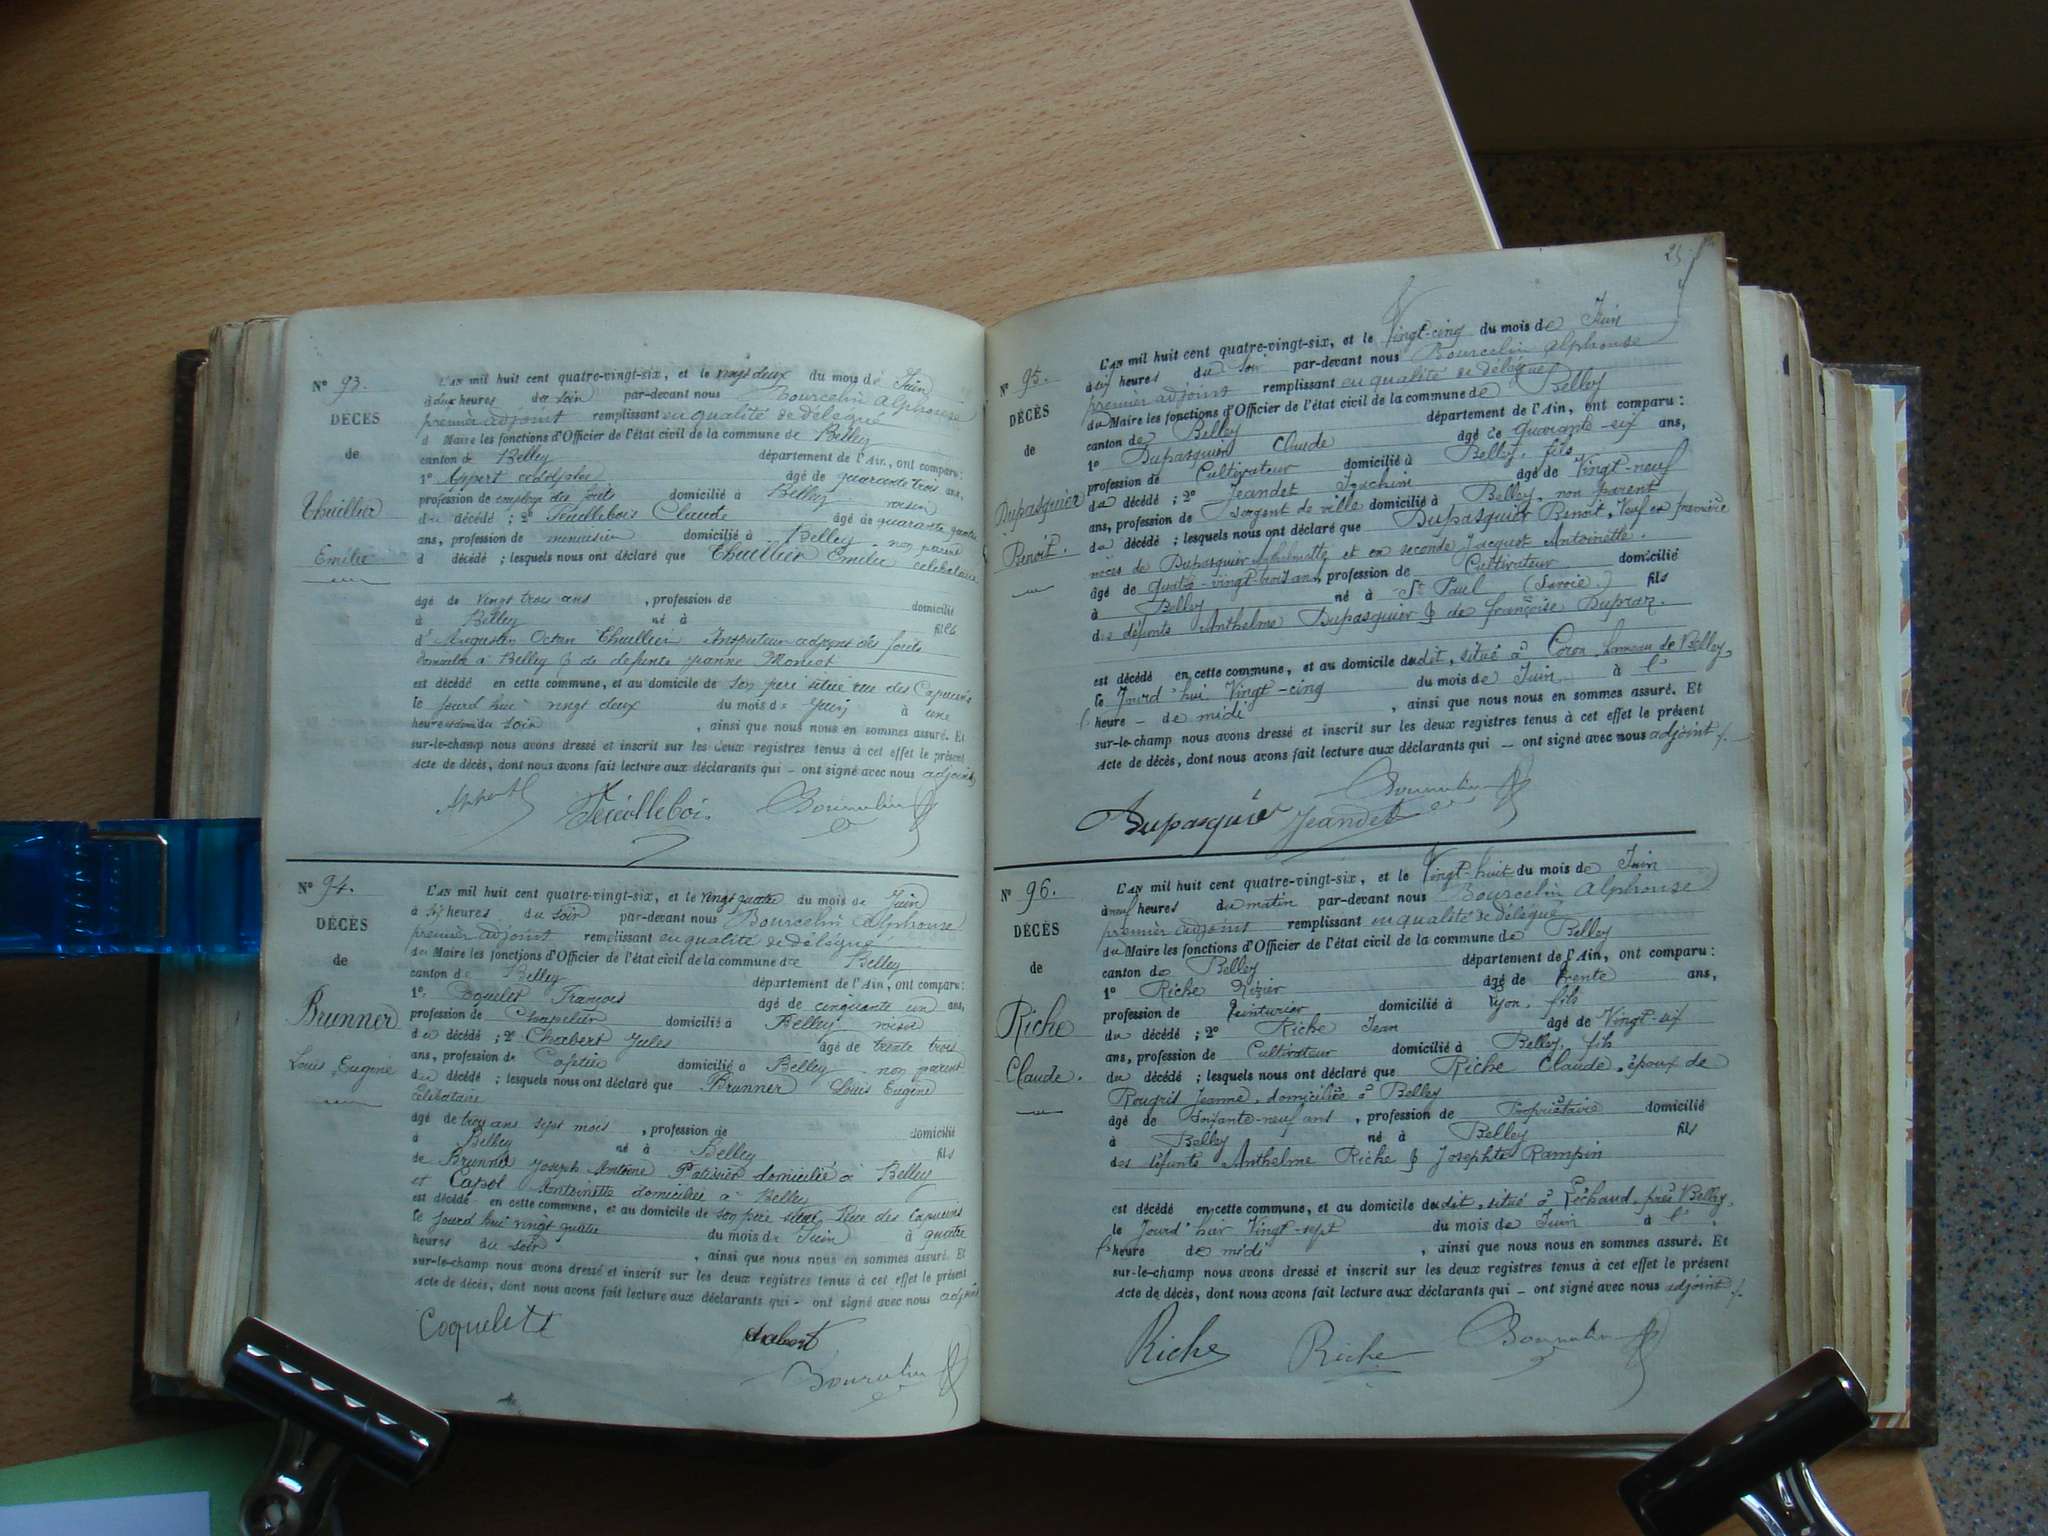 N° 93.
DÉCÈS
de
Thuillier
Emélie
L'AN mil huit cent quatre-vingt-six, et le vingt deux du mois de Juin
à deux heures du soir par-devant nous Bourcelin Alphonse
premier adjoint remplissant en qualité de délégué
d Maire les fonctions d'Officier de l'état civil de la commune de Belley
canton de Belley département de l'Ain, ont comparu :
1° Appert Adolphe âgé de quarante trois ans,
profession de employé des forêts domicilié à Belley voisin
du décédé ; 2° Feuillebois Claude âgé de quarante quatre
ans, profession de menuisier domicilié à Belley non parent
d décédé ; lesquels nous ont déclaré que Thuillier Emélie célebataire
âgé de vingt trois ans , profession de domicilié
à Belley né à fille
d' Augustin Octave Thuillier Inspecteur adjoint des forêts
domicilié à Belley & de défunte Jeanne Moniet
est décédé en cette commune, et au domicile de son père située rue des Capucins
le jourd'hui vingt deux du mois de Juin à une
heure et demi du soir , ainsi que nous nous en sommes assuré. Et
sur-le-champ nous avons dressé et inscrit sur les deux registres tenus à cet effet le présent
Acte de décès, dont nous avons fait lecture aux déclarants qui – ont signé avec nous adjoint
Appert Feuillebois Bourcelin
N° 94.
DÉCÈS
de
Brunner
Louis Eugéne
L'AN mil huit cent quatre-vingt-six, et le vingt quatre du mois de Juin
à six heures du soir par-devant nous Bourcelin Alphonse
premier adjoint remplissant en qualité de délégué
du Maire les fonctions d'Officier de l'état civil de la commune de Belley
canton de Belley département de l'Ain, ont comparu :
1° Coquelet François âgé de cinquante un ans,
profession de Chapelier domicilié à Belley voisin
du décédé ; 2° Chabert Jules âgé de trente trois
ans, profession de Cafetier domicilié à Belley non parent
du décédé ; lesquels nous ont déclaré que Brunner Louis Eugéne
célebataire
âgé de trois ans sept mois , profession de domicilié
à Belley né à Belley fils
de Brunner Joseph Antoine Patissier domicilié à Belley
et Capol Antoinette domiciliés à Belley
est décédé en cette commune, et au domicile de son père situé Rue des Capucins
le jourd'hui vingt quatre du mois de Juin à quatre
heures du soir , ainsi que nous nous en sommes assuré. Et
sur-le-champ nous avons dressé et inscrit sur les deux registres tenus à cet effet le présent
Acte de décès, dont nous avons fait lecture aux déclarants qui – ont signé avec nous adjoint
Coquelett Chabert
Bourcelin
N° 95.
DÉCÈS
de
Dupasquier
Benoit.
L'AN mil huit cent quatre-vingt-six, et le Vingt-cinq du mois de Juin
à six heures du soir par-devant nous Bourcelin Alphonse
premier adjoint remplissant en qualité de délégué
du Maire les fonctions d'Officier de l'état civil de la commune de Belley
canton de Belley département de l'Ain, ont comparu :
1° Dupasquier Claude âgé de quarante-six ans,
profession de Cultivateur domicilié à Belley, fils
du décédé ; 2° Jeandet Joachim âgé de Vingt-neuf
ans, profession de Sergent de ville domicilié à Belley, non parent
du décédé ; lesquels nous ont déclaré que Dupasquier Benoit, Veuf en première
noces de Dupasquier Anthelmette et en seconde Jacquet Antoinette.
âgé de quatre-vingt-trois ans, profession de Cultivateur domicilié
à Belley né à St Paul (Savoie) fils
des défunts Anthelme Dupasquier & de françoise Dupraz.
est décédé en cette commune, et au domicile dudit, situé à Coron, hameau de Belley,
le Jourd'hui Vingt-cinq du mois de Juin à l'
heure – de midi , ainsi que nous nous en sommes assuré. Et
sur-le-champ nous avons dressé et inscrit sur les deux registres tenus à cet effet le présent
Acte de décès, dont nous avons fait lecture aux déclarants qui – ont signé avec nous adjoint
Bourcelin
Dupasquié Jeandet
N° 96.
DÉCÈS
de
Riche
Claude.
L'AN mil huit cent quatre-vingt-six, et le Vingt-huit du mois de Juin
à neuf heures du matin par-devant nous Bourcelin Alphonse
premier adjoint remplissant en qualité de délégué
du Maire les fonctions d'Officier de l'état civil de la commune de Belley
canton de Belley département de l'Ain, ont comparu :
1° Riche Nizier âgé de trente ans,
profession de Teinturier domicilié à Lyon, fils
du décédé ; 2° Riche Jean âgé de Vingt-six
ans, profession de Cultivateur domicilié à Belley, fils
du décédé ; lesquels nous ont déclaré que Riche Claude, époux de
Rougris Jeanne, domiciliée à Belley
âgé de Soixante-neuf ans , profession de Propriétaire domicilié
à Belley né à Belley fils
des défunts Anthelme Riche & Josephte Rampin
est décédé en cette commune, et au domicile dudit, situé à Lichaud, près Belley,
le Jourd'hier Vingt-sept du mois de Juin à l'
heure de midi , ainsi que nous nous en sommes assuré. Et
sur-le-champ nous avons dressé et inscrit sur les deux registres tenus à cet effet le présent
Acte de décès, dont nous avons fait lecture aux déclarants qui – ont signé avec nous adjoint
Riche Riche Bourcelin